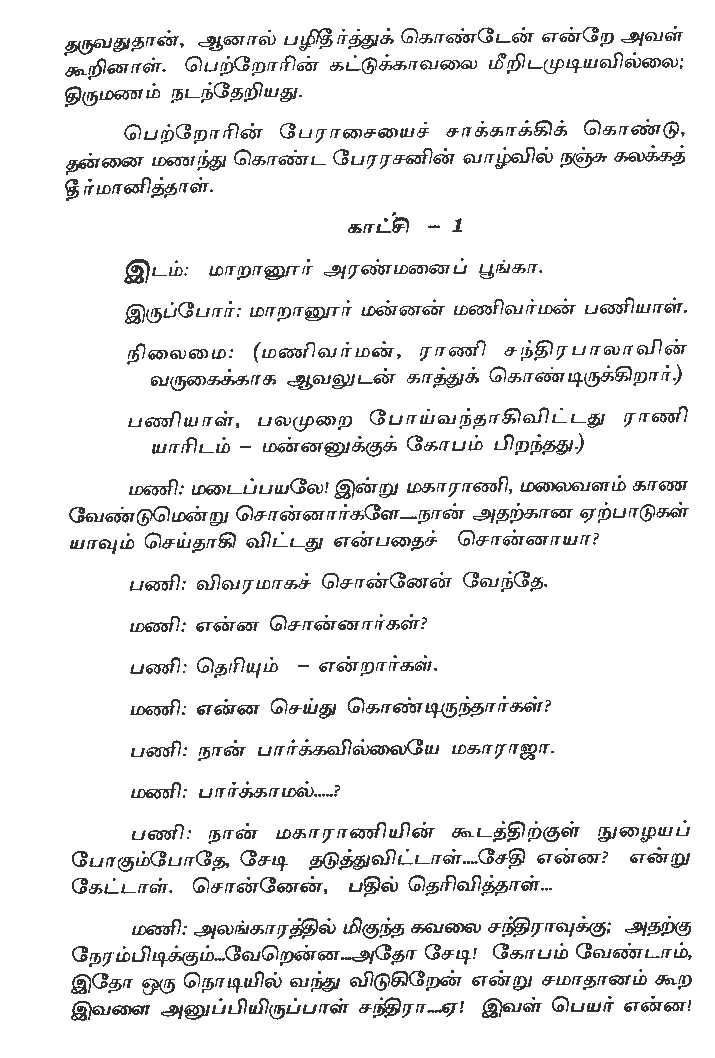 தருவதுதான், ஆனால் பழிதீர்த்துக் கொண்டேன் என்றே அவள்
கூறினாள். பெற்றோரின் கட்டுக்காவலை மீறிடமுடியவில்லை;
திருமணம் நடந்தேறியது.
பெற்றோரின் பேராசையைச் சாக்காக்கிக் கொண்டு,
தன்னை மணந்து கொண்ட பேரரசனின் வாழ்வில் நஞ்சு கலக்கத்
தீர்மானித்தாள்.
காட்சி – 1
இடம்: மாறானூர் அரண்மனைப் பூங்கா.
இருப்போர்: மாறானூர் மன்னன் மணிவர்மன் பணியாள்.
நிலைமை: (மணிவர்மன், ராணி சந்திரபாலாவின்
வருகைக்காக ஆவலுடன் காத்துக் கொண்டிருக்கிறார்.)
பணியாள், பலமுறை போய்வந்தாகிவிட்டது ராணி
யாரிடம் – மன்னனுக்குக் கோபம் பிறந்தது.)
மணி: மடைப்பயலே! இன்று மகாராணி, மலைவளம் காண
வேண்டுமென்று சொன்னார்களே....நான் அதற்கான ஏற்பாடுகள்
யாவும் செய்தாகி விட்டது என்பதைச் சொன்னாயா?
பணி: விவரமாகச் சொன்னேன் வேந்தே.
மணி: என்ன சொன்னார்கள்?
பணி: தெரியும் – என்றார்கள்.
மணி: என்ன செய்து கொண்டிருந்தார்கள்?
பணி: நான் பார்க்கவில்லையே மகாராஜா.
மணி: பார்க்காமல்.....?
பணி: நான் மகாராணியின் கூடத்திற்குள் நுழையப்
போகும்போதே, சேடி தடுத்துவிட்டாள்....சேதி என்ன? என்று
கேட்டாள். சொன்னேன், பதில் தெரிவித்தாள்...
மணி: அலங்காரத்தில் மிகுந்த கவலை சந்திராவுக்கு; அதற்கு
நேரம்பிடிக்கும்...வேறென்ன....அதோ சேடி! கோபம் வேண்டாம்,
இதோ ஒரு நொடியில் வந்து விடுகிறேன் என்று சமாதானம் கூற
இவளை அனுப்பியிருப்பாள் சந்திரா....ஏ! இவள் பெயர் என்ன!